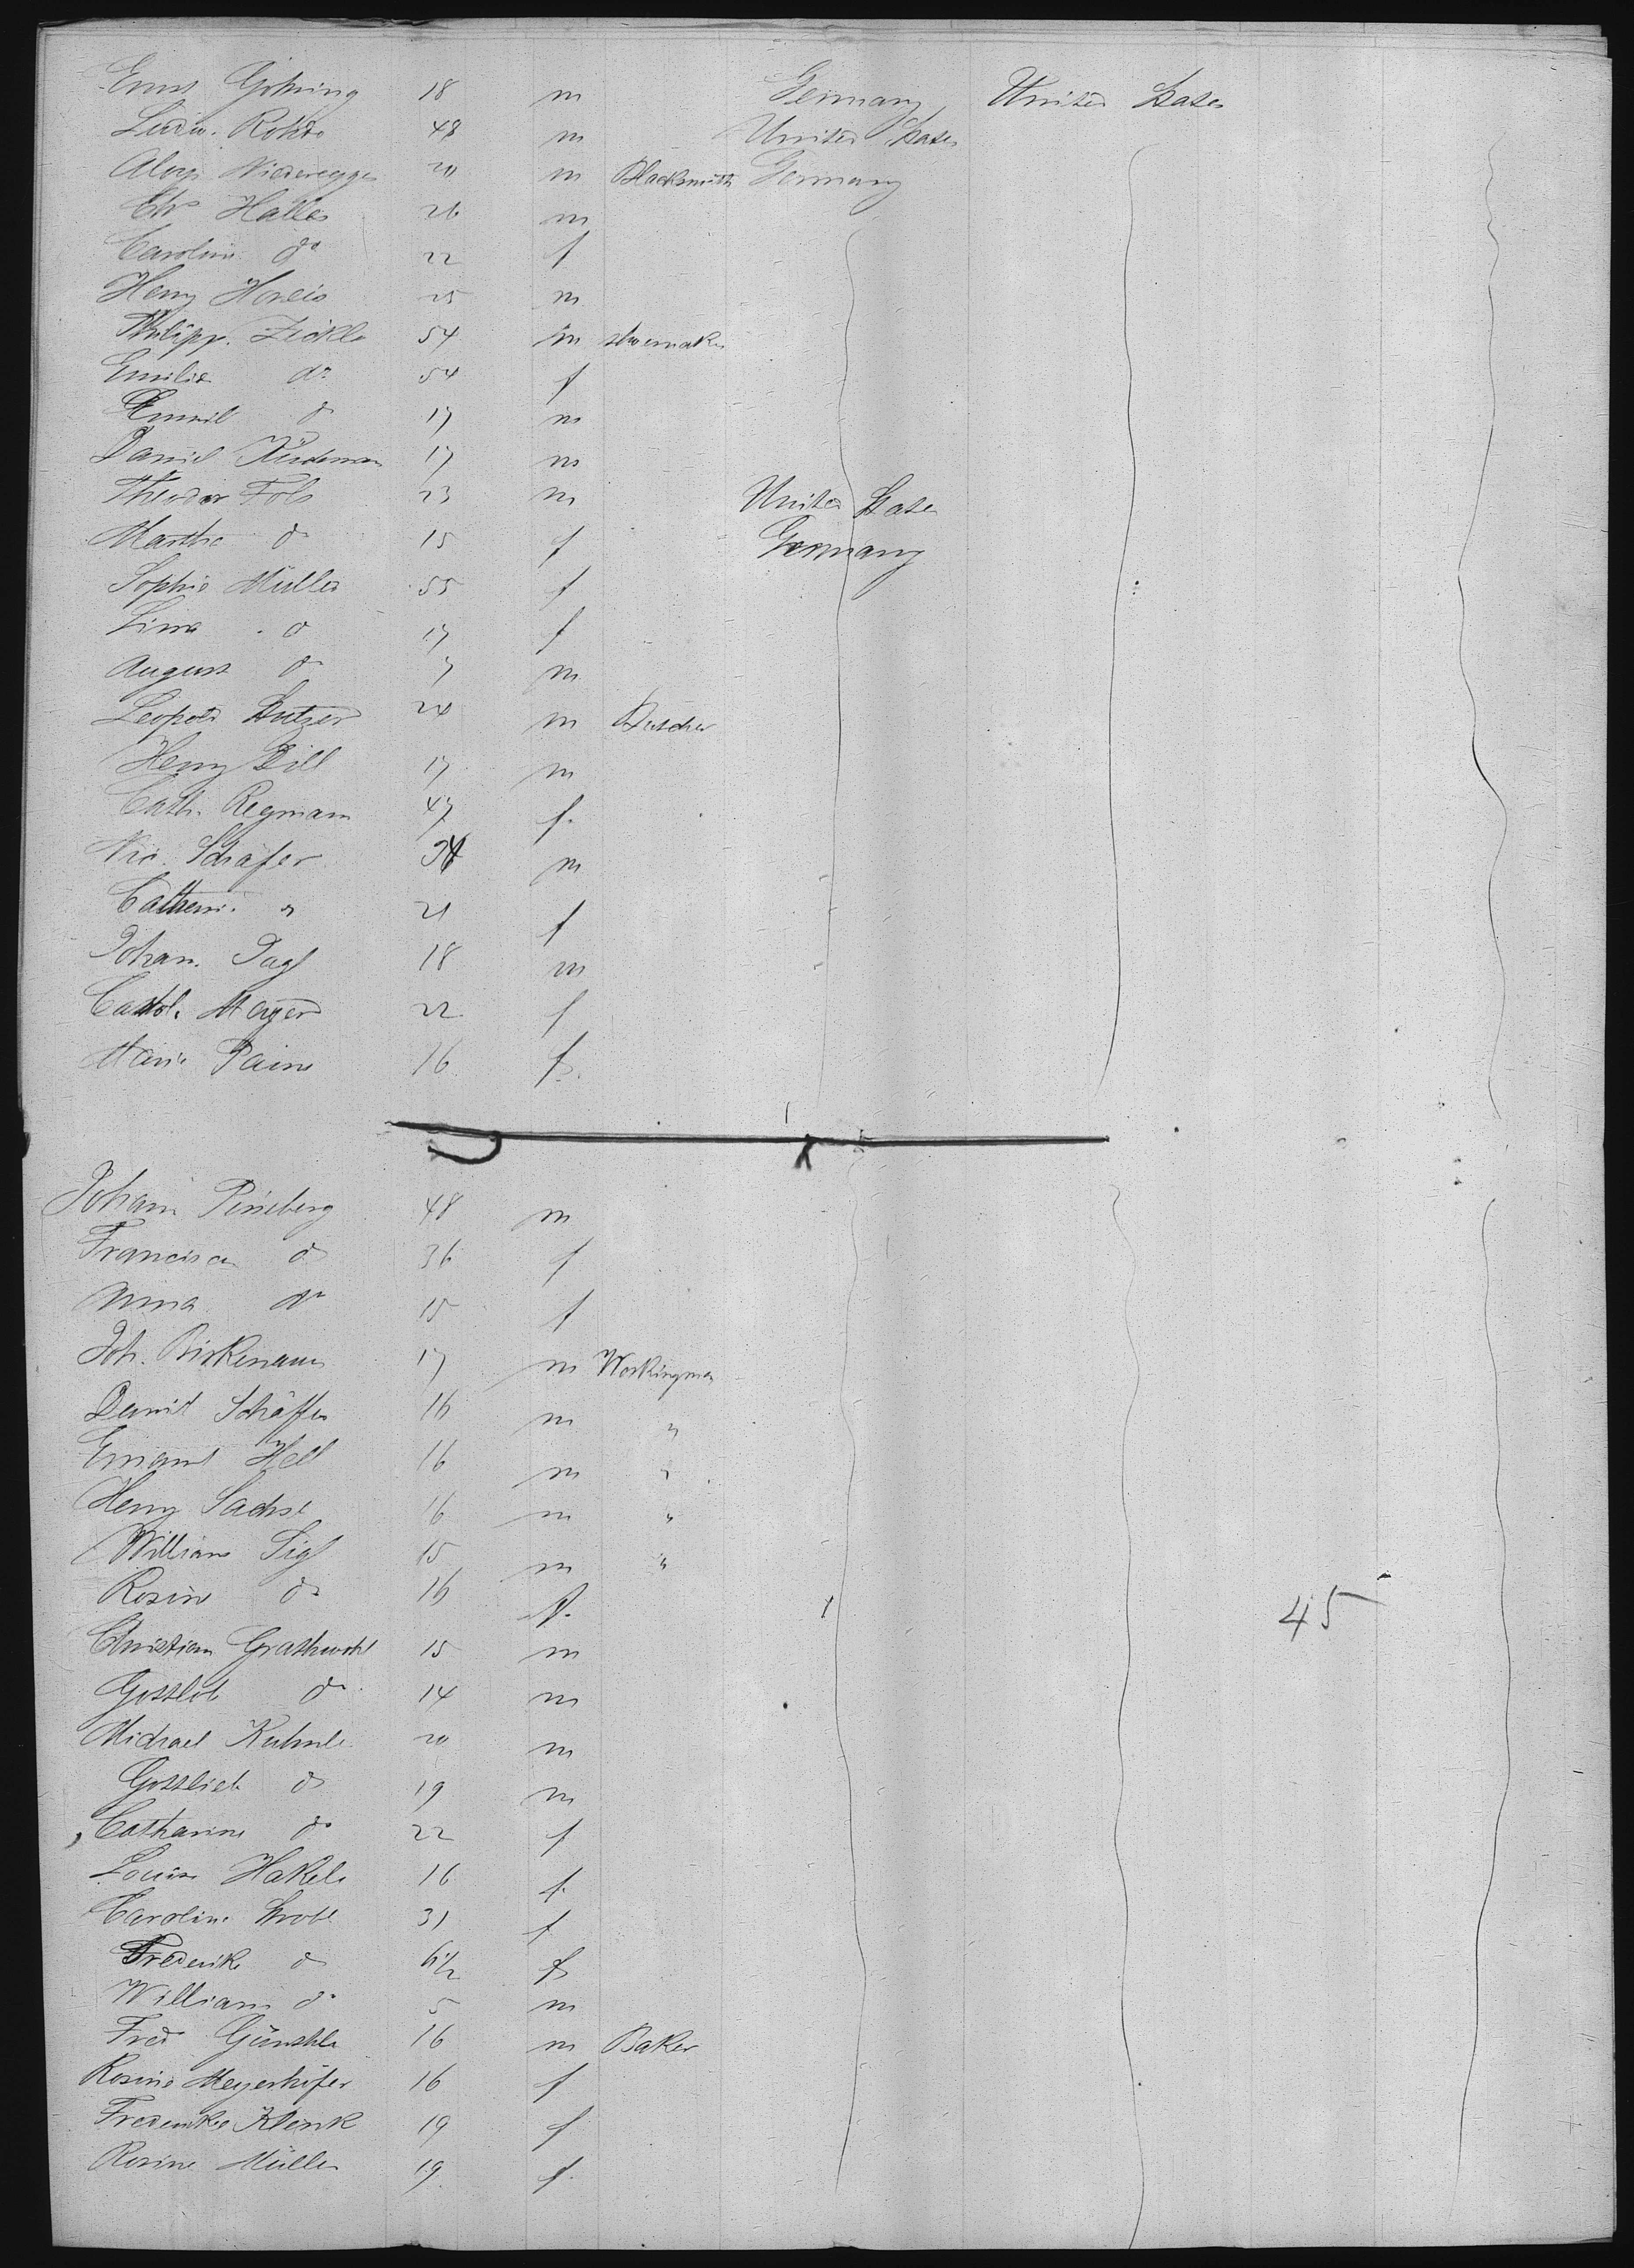 Ernst Göhring 18 m Germany United States
Ludw. Rohde 48 m United States
Aloys Niederegger 20 m Blacksmith Germany
Chr Haller 26 m
Caroline do 22 f
Henry Horeis 25 m
Philipp. Zickle 54 m shoemaker
Emilie do 54 f
Emil do 17 m
Daniel 17 m
Theodor Fols 23 m United States
Martha do 15 f Germany
Sophie Müller 55 f
Lina do 17 f
August do 7 m
Leopold 24 m Butcher
Henry Dill 17 m
Cath. Regmann 47 f.
Nic. Schäfer m
Cathern. " 21 f
Johan. 18 m
Mayer 22 f
Marie 16 f.
Johann Pineberg 48 m
Francisca do 36 f
Anna do 15 f
Joh. Birkenauer 17 m Workingman
David Schäffer 16 m "
Hell 16 m "
Henry Sachse 16 m "
William Sigl 15 m "
Rosine do 16 f. 45
Christian Grathwohl 15 m
Gottlob do 14 m
Michael Kuhnle 20 m
Gottlieb do 19 m
Catharine do 22 f
Louise Hakele 16 f.
Caroline Strobl 31 f
Frederike do 6 1/2 f
William do 5 m
Fred 16 m Baker
Rosine Meyerhöfer 16 f
Frederike Klenk 19 f
Rosine Müller 19. f.